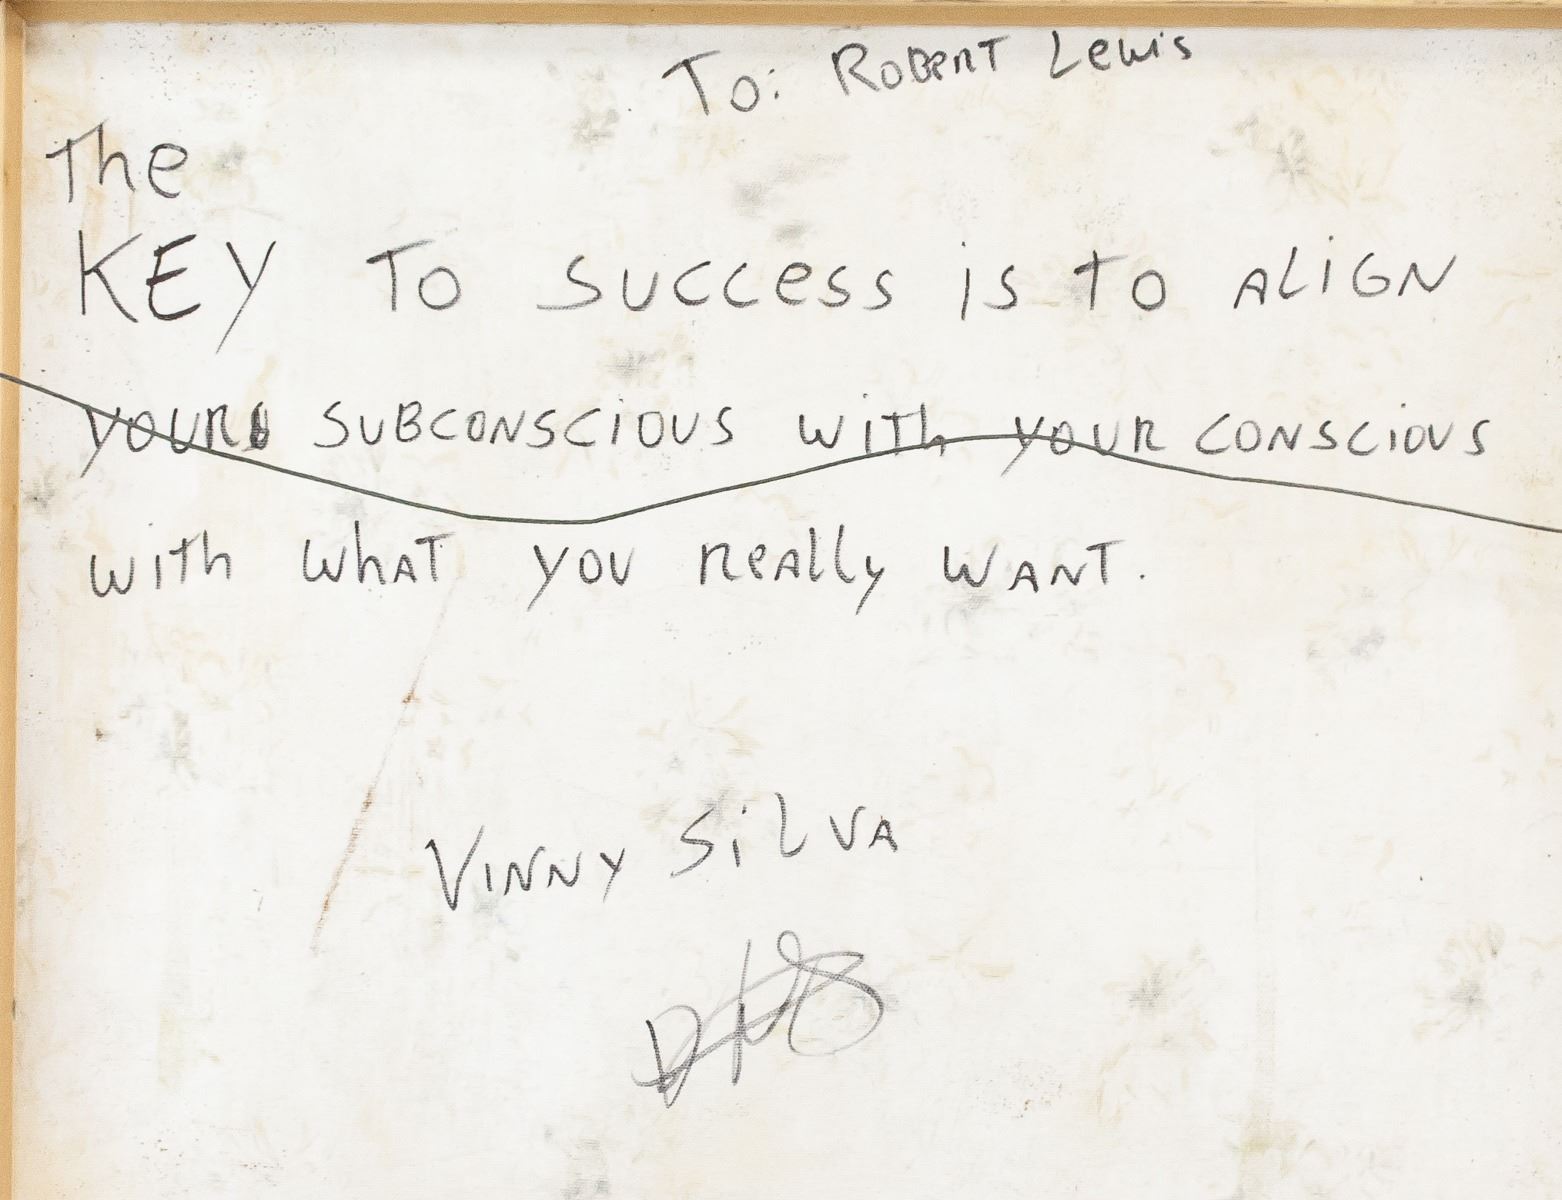 To: RoBeRT Lewis
The
KEY To SUCCess is to ALiGN
YOUR SUBCONSCiOUS WiTh YOUR CONSCiOUS
WiTh WhAT YOU ReALLy WANT.
VINNY SiLVA